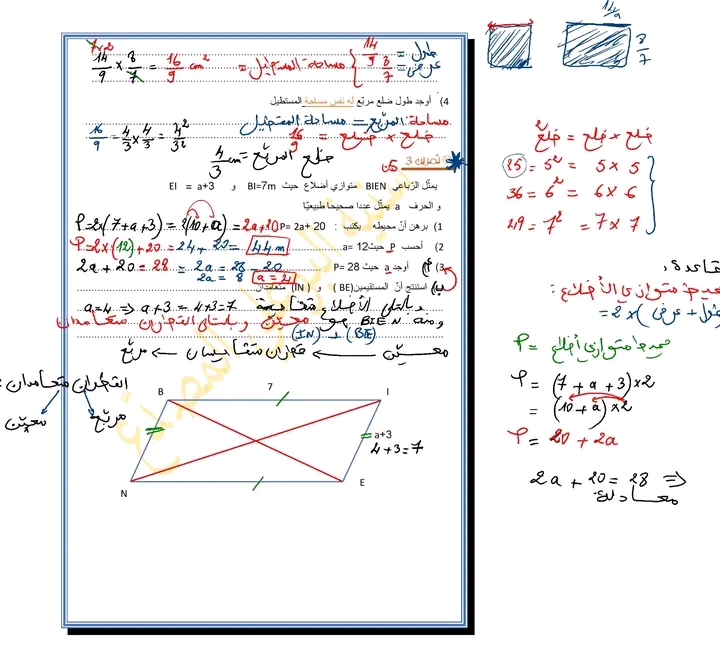 14/9 × 8/7 = 16/9 cm² = مساحة المستطيل { 14/9 = طول
8/7 = عرض
4) أوجد طول ضلع مربّع له نفس مساحة المستطيل
مساحة المربّع = مساحة المستطيل
16/9 = 4/3 × 4/3 = 4²/3²
ضلع × ضلع = 16/9
ضلع المربّع = 4/3 cm
تمرين 3
يمثّل الرّباعي BIEN متوازي أضلاع حيث BI=7m و EI = a+3
و الحرف a يمثّل عددا صحيحا طبيعيّا
1) برهن أنّ محيطه يكتب : P= 2a+ 20
P=2×(7+a+3) = 2(10+a) = 2a+20
2) أحسب P حيث a= 12
P=2×(12)+20 = 24+20 = 44 m
3) أ) أوجد a حيث P= 28
2a + 20 = 28 = 2a = 28 - 20
2a = 8 a = 4
ب) استنتج أنّ المستقيمين (BE) و (IN) متعامدان
a=4 ⟹ a+3 = 4+3=7 وبالتالي الأضلاع متقايسة
ومنه BIEN هو معيّن وبالتالي القطران متعامدان
(IN) ⊥ (BE)
معيّن ← قطران متقايسان ← مربّع
القطران متعامدان :
مربّع
معيّن
B
7
I
a+3
4+3=7
N
E
14/9
8/7
ضلع × ضلع = ضلع²
25 = 5² = 5 × 5
36 = 6² = 6 × 6
49 = 7² = 7 × 7
متوازي الأضلاع :
عرض) × 2 =
P = محيط متوازي أضلاع
P = (7 + a + 3)×2
= (10 + a)×2
P = 20 + 2a
2a + 20 = 28 ⟹
معادلة